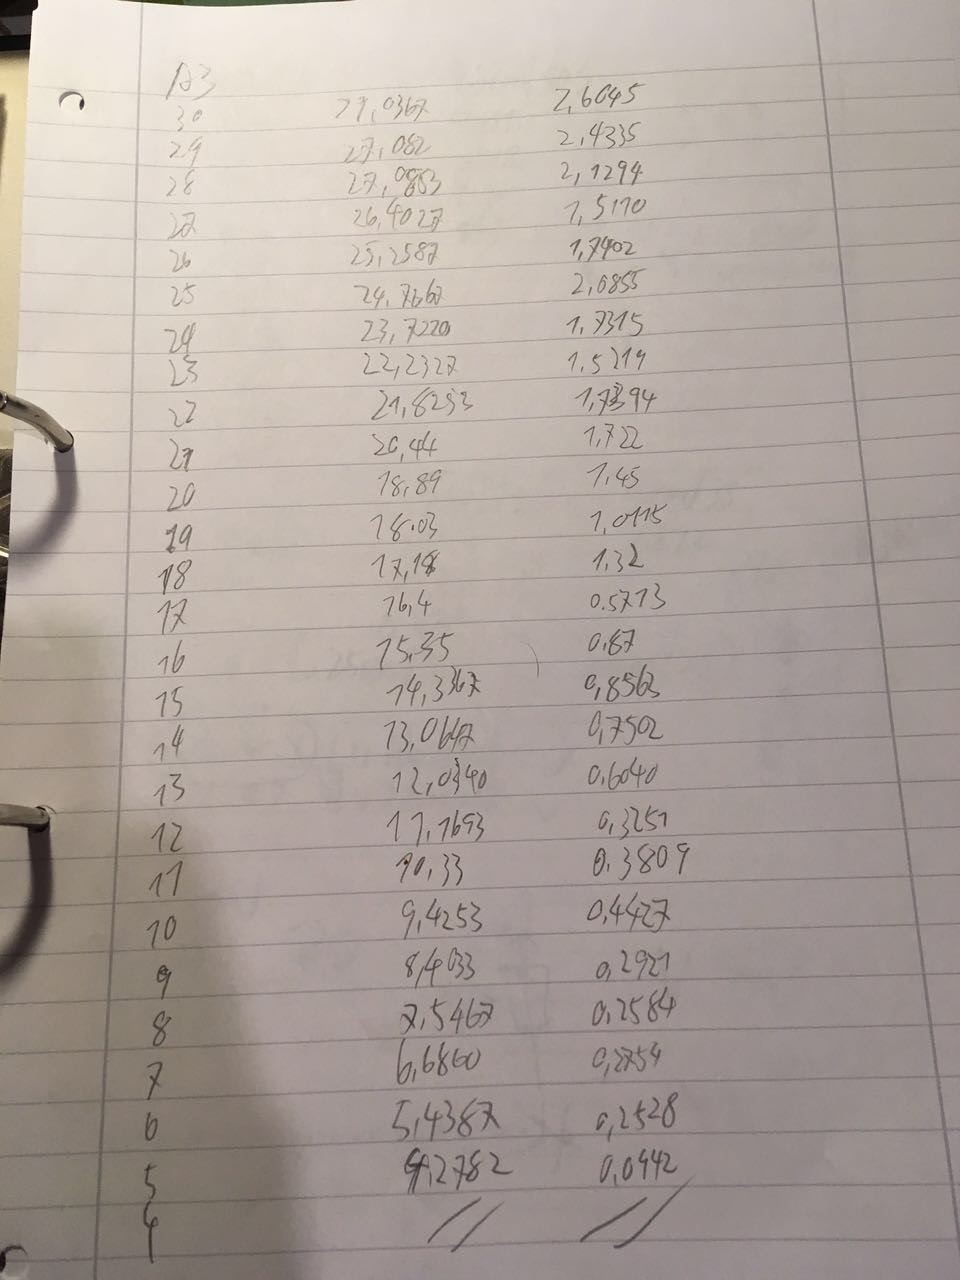 A3
30 27,0367 2,6045
29 27,082 2,4335
28 27,0883 2,1294
27 26,4027 1,5170
26 25,2587 1,7402
25 24,7667 2,0855
24 23,7220 1,7315
23 22,2327 1,5219
22 21,8253 1,7394
21 20,44 1,722
20 18,89 1,45
19 18.03 1,0115
18 17,18 1,32
17 16,4 0.5713
16 15,35 0.87
15 14,3367 0,8563
14 13,0647 0,7502
13 12,0340 0,6040
12 11,1693 0,3251
11 10,33 0.3809
10 9,4253 0,4427
9 8,4033 0,2921
8 7,5467 0,2584
7 6,6860 0,2754
6 5,4387 0,2528
5 4,2782 0,0942
4 // //